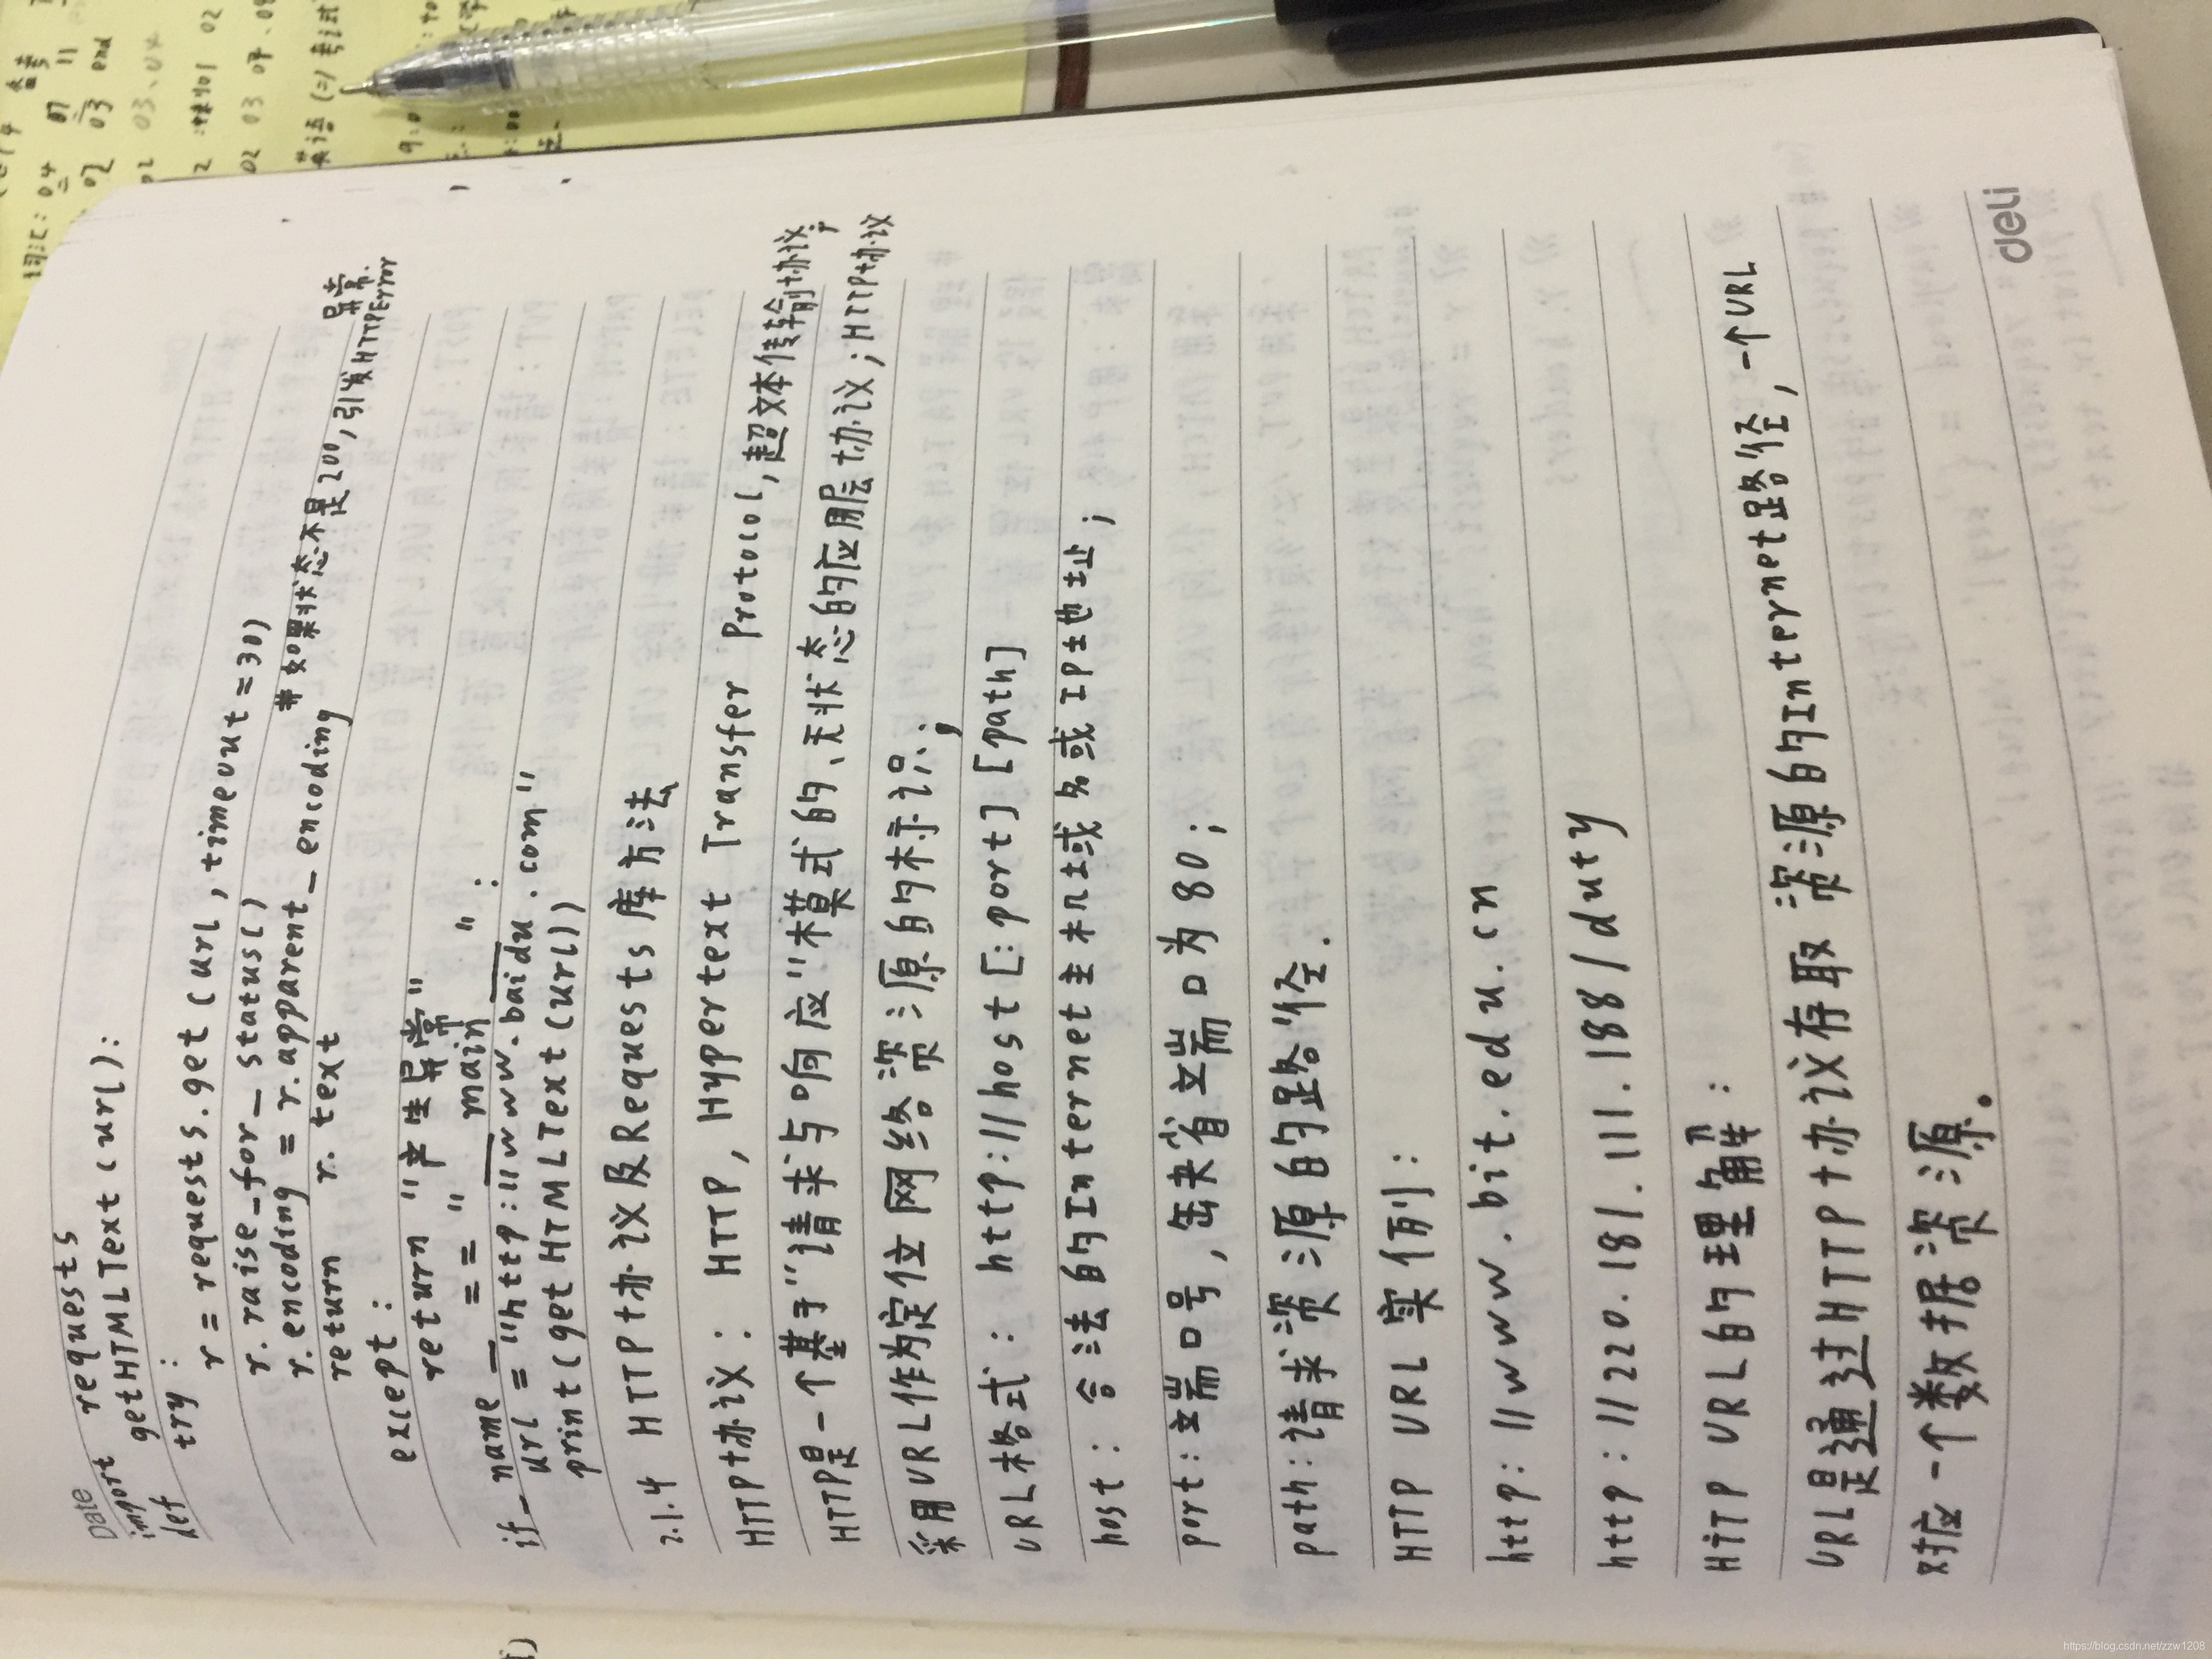 Date
import requests
def getHTMLText(url):
try:
r = requests.get(url, timeout=30)
r.raise_for_status()
#如果状态不是200,引发HTTPError异常.
r.encoding = r.apparent_encoding
return r.text
except:
return "产生异常"
if __name__ == "__main__":
url = "http://www.baidu.com"
print(getHTMLText(url))
2.1.4 HTTP协议及Requests库方法
HTTP协议: HTTP, Hypertext Transfer Protocol, 超文本传输协议;
HTTP是一个基于"请求与响应"模式的、无状态的应用层协议;HTTP协议
采用URL作为定位网络资源的标识;
URL格式: http://host[:port][path]
host: 合法的Internet主机域名或IP地址;
port:端口号,缺省端口为80;
path:请求资源的路径.
HTTP URL实例:
http://www.bit.edu.cn
http://220.181.111.188/duty
HTTP URL的理解:
URL是通过HTTP协议存取资源的Internet路径,一个URL
对应一个数据资源。
deli
https://blog.csdn.net/zzw1208